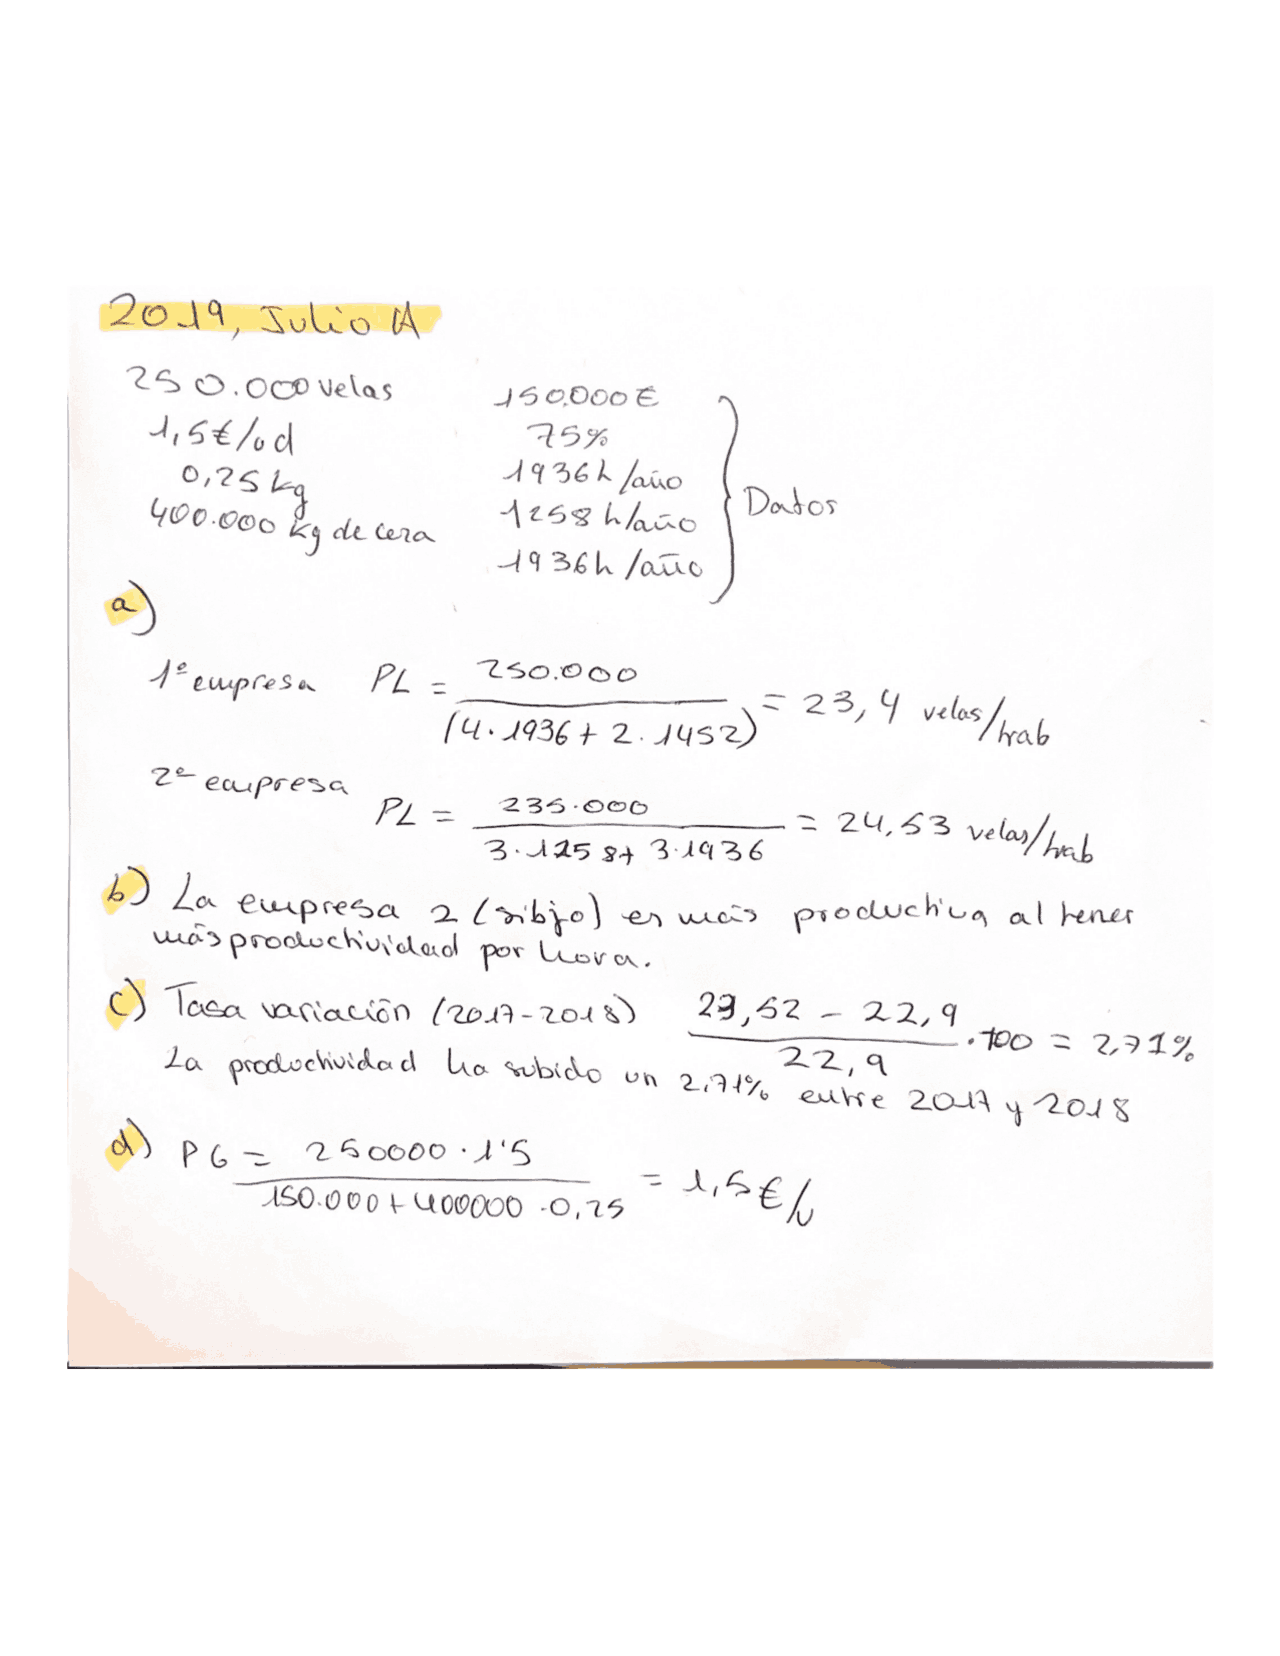 2019, Julio A
250.000 velas
1,5€/ud
0,25 kg
400.000 kg de cera
150.000 €
75%
1936h/año
1258 h/año
1936h/año
Datos
a)
1ª empresa PL = 250.000 / (4·1936 + 2·1452) = 23,4 velas/trab
2ª empresa
PL = 235.000 / 3·1258 + 3·1936 = 24,53 velas/trab
b) La empresa 2 (sibjo) es más productiva al tener
más productividad por hora.
c) Tasa variación (2017-2018) 23,52 - 22,9 / 22,9 ·100 = 2,71%
La productividad ha subido un 2,71% entre 2017 y 2018
d) PG = 250000 · 1'5 / 150.000 + 400000 · 0,25 = 1,5€/u